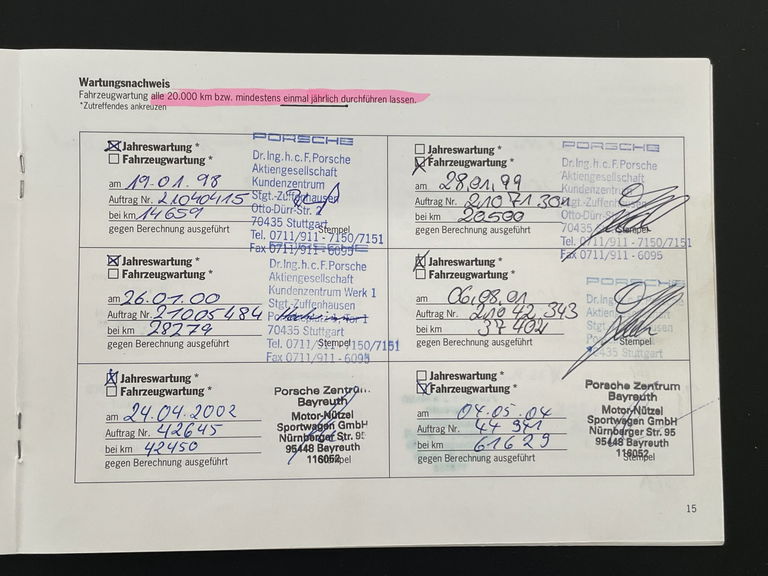 Wartungsnachweis
Fahrzeugwartung alle 20.000 km bzw. mindestens einmal jährlich durchführen lassen.
*Zutreffendes ankreuzen
Jahreswartung *
Fahrzeugwartung *
am 19.01.98
Auftrag Nr. 21040415
bei km 14659
gegen Berechnung ausgeführt
PORSCHE
Dr. Ing. h. c. F. Porsche
Aktiengesellschaft
Kundenzentrum
Stgt.-Zuffenhausen
Otto-Dürr-Str. 2
70435 Stuttgart
Stempel
Tel. 0711/911 - 7150/7151
Fax 0711/911 - 6095
Jahreswartung *
Fahrzeugwartung *
am 28.01.99
Auftrag Nr. 21071301
bei km 20500
gegen Berechnung ausgeführt
PORSCHE
Dr. Ing. h. c. F. Porsche
Aktiengesellschaft
Kundenzentrum
Stgt.-Zuffenhausen
Otto-Dürr-Str.
70435 Stuttgart
Stempel
Tel. 0711/911 - 7150/7151
Fax 0711/911 - 6095
Jahreswartung *
Fahrzeugwartung *
am 26.01.00
Auftrag Nr. 21005484
bei km 28279
gegen Berechnung ausgeführt
Dr. Ing. h. c. F. Porsche
Aktiengesellschaft
Kundenzentrum Werk 1
Stgt.-Zuffenhausen
70435 Stuttgart
Stempel
Tel. 0711/911 - 7150/7151
Fax 0711/911 - 6095
Jahreswartung *
Fahrzeugwartung *
am 06.08.01
Auftrag Nr. 2102 343
bei km 37402
gegen Berechnung ausgeführt
PORSCHE
Dr. Ing.
Aktien
Stgt.
Stempel
70435 Stuttgart
Jahreswartung *
Fahrzeugwartung *
am 24.04.2002
Auftrag Nr. 42645
bei km 42450
gegen Berechnung ausgeführt
Porsche Zentrum
Bayreuth
Motor-Nützel
Sportwagen GmbH
Nürnberger Str. 95
95448 Bayreuth
116052
Stempel
Jahreswartung *
Fahrzeugwartung *
am 04.05.04
Auftrag Nr. 44 941
bei km 61629
gegen Berechnung ausgeführt
Porsche Zentrum
Bayreuth
Motor-Nützel
Sportwagen GmbH
Nürnberger Str. 95
95448 Bayreuth
116052
Stempel
15